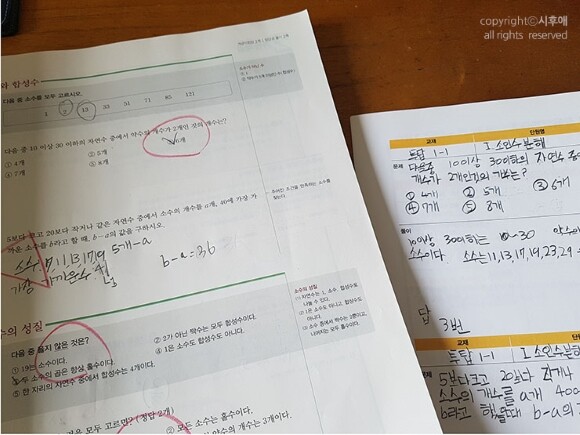 copyrightⓒ시후애
all rights reserved
합성수
다음 중 소수를 모두 고르시오.
1 2 13 33 51 71 85 121
다음 중 10 이상 30 이하의 자연수 중에서 약수의 개수가 2개인 것의 개수는?
① 4개 ② 5개 ③ 6개
④ 7개 ⑤ 8개
5보다 크고 20보다 작거나 같은 자연수 중에서 소수의 개수를 a개, 40에 가장 가
까운 소수를 b라고 할 때, b-a의 값을 구하시오.
소수 7, 11, 13, 17, 19 5개-a
가장 가까운수
b-a=36
소수의 성질
다음 중 옳지 않은 것은?
① 19는 소수이다.
② 2가 아닌 짝수는 모두 합성수이다.
두 소수의 곱은 항상 홀수이다.
④ 1은 소수도 합성수도 아니다.
⑤ 한 자리의 자연수 중에서 합성수는 4개이다.
모두 고르면? (정답 2개)
모든 소수는 홀수이다.
약수의 개수가 3개이다.
소수의 성질
교재 단원명
투탑 1-1 I. 소인수분해
문제
다음중 10이상 30이하의 자연수 중에
개수가 2개인것의 개수는?
① 4개 ② 5개 ③ 6개
④ 7개 ⑤ 8개
풀이
10이상 30이하는 10~30 약수
소수이다. 소수는 11, 13, 17, 19, 23, 29
답 3번
교재 단원명
투탑 1-1 I. 소인수분해
5보다크고 20보다 작거나
소수의 개수를 a개 40에
b라고 했을때 b-a의